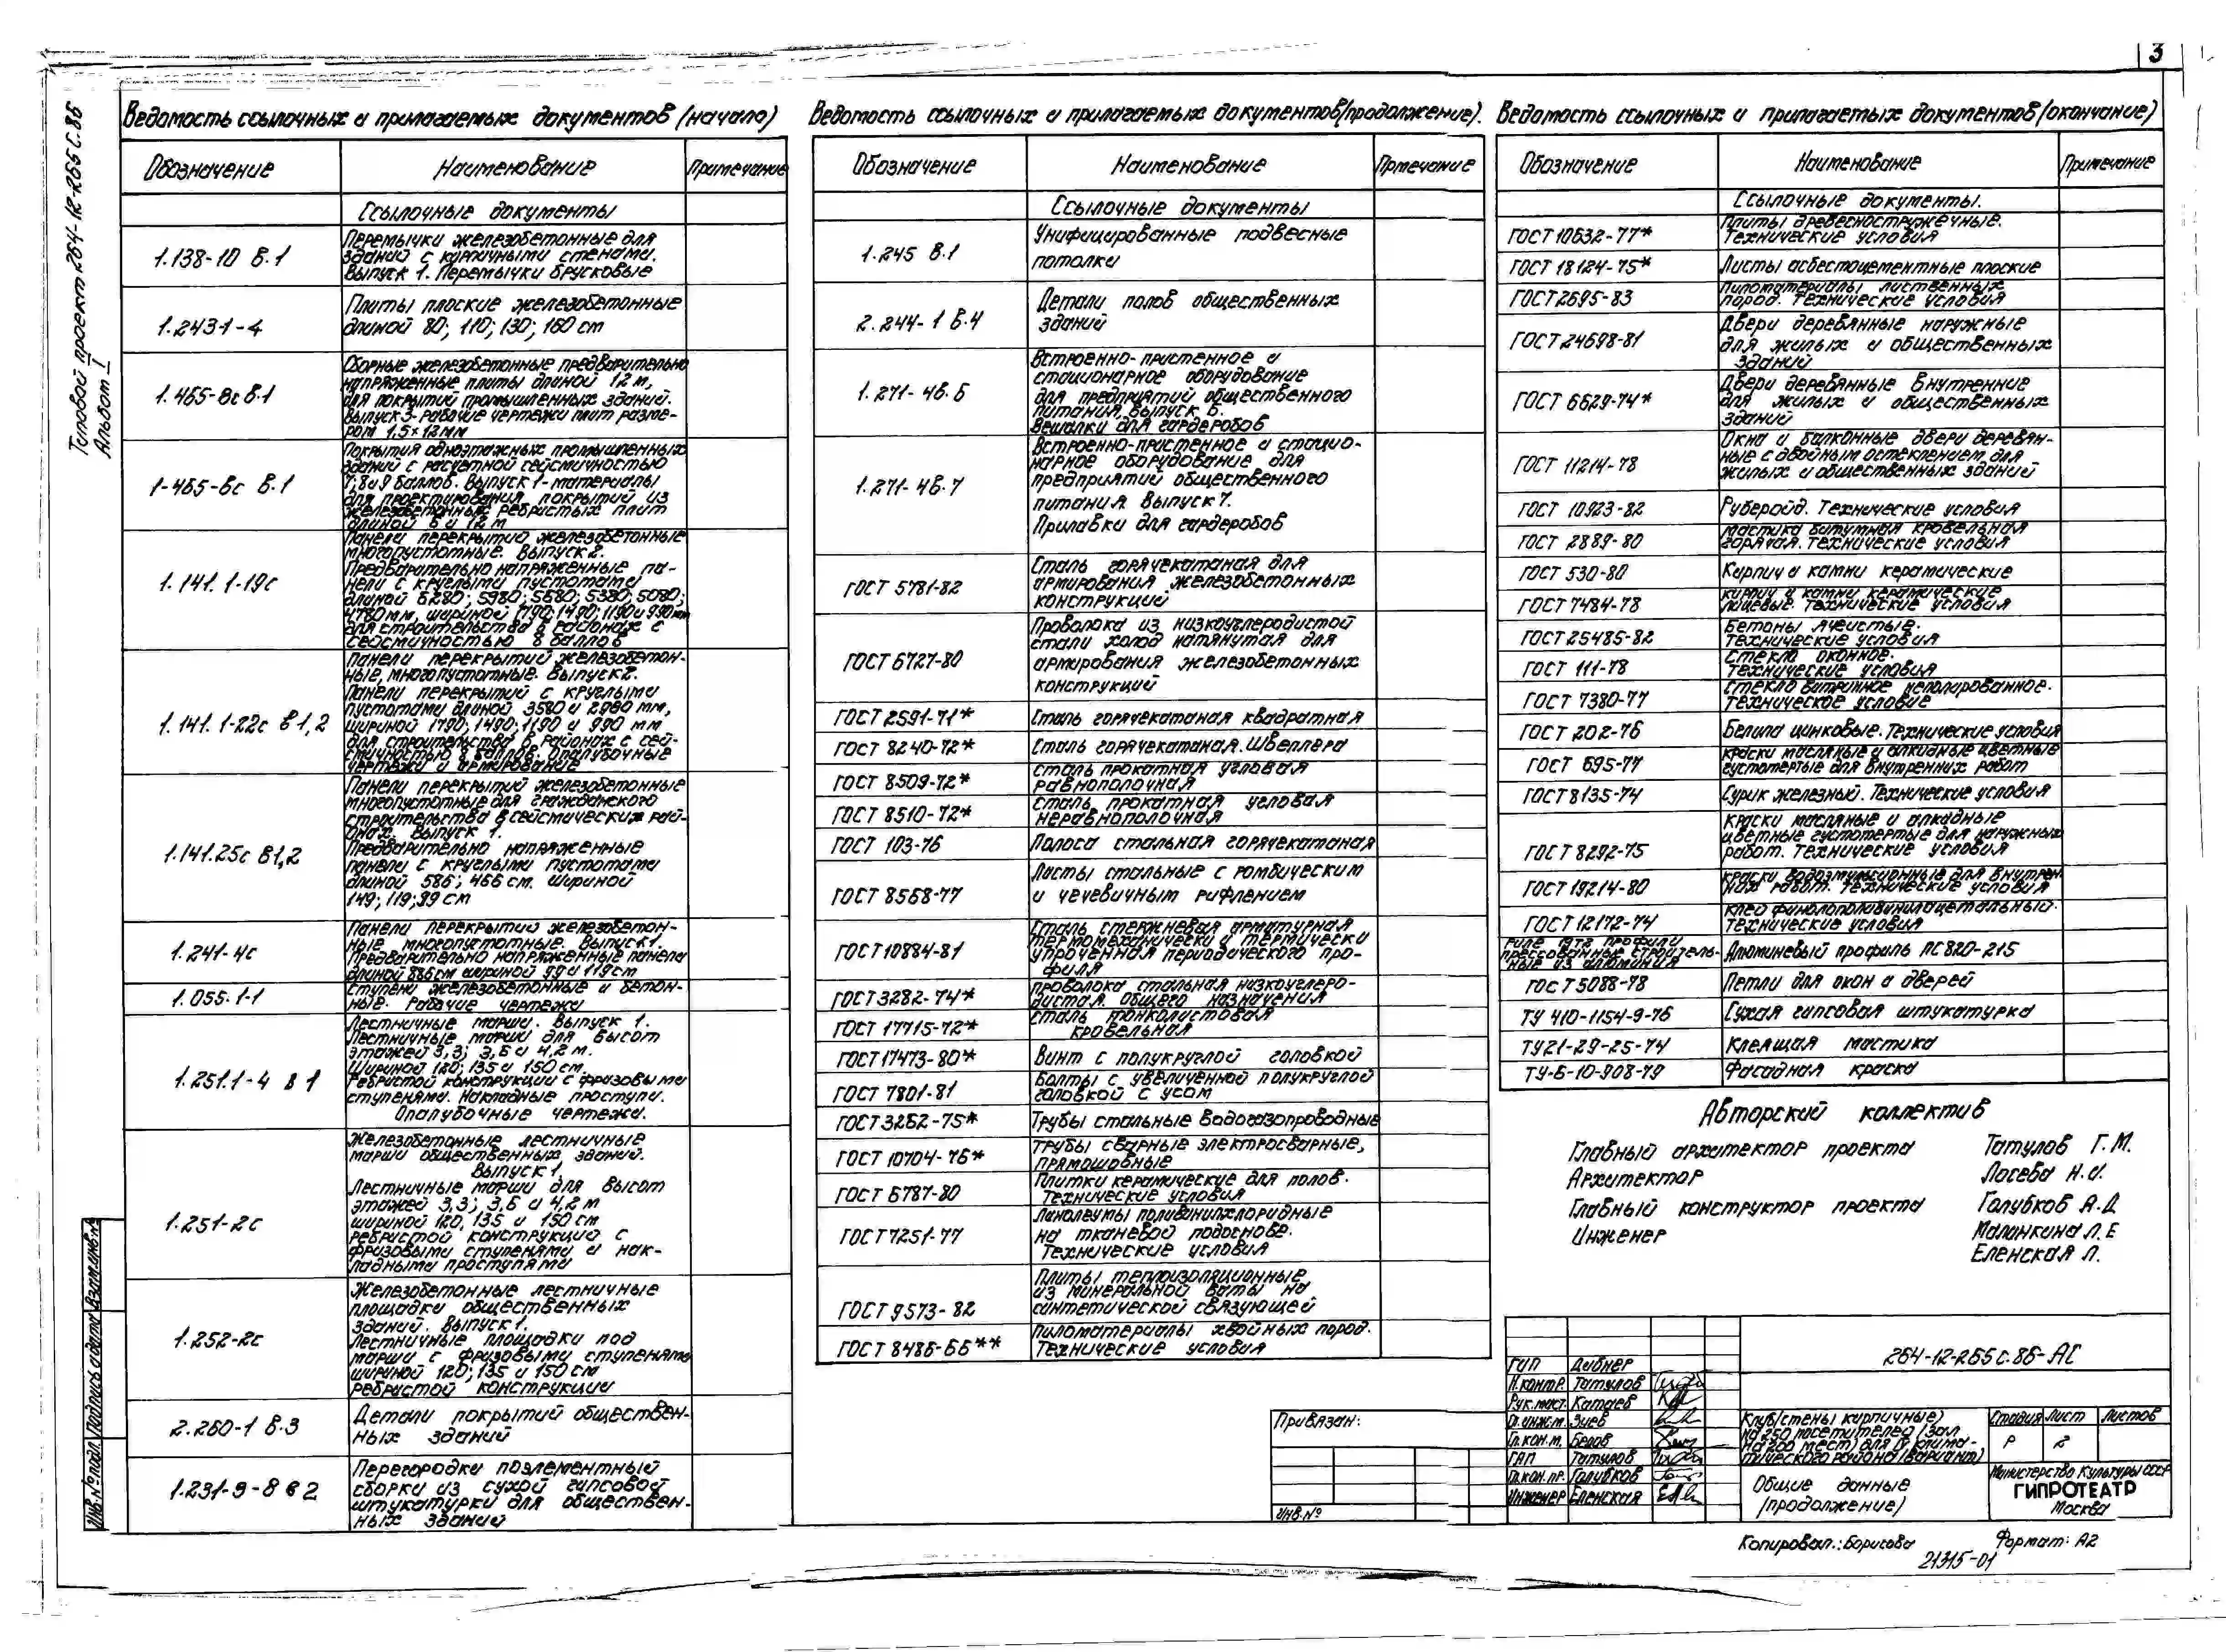 3
Типовой проект 264-12-265с.86
Альбом I
Ведомость ссылочных и прилагаемых документов (начало)
Обозначение Наименование Примечание
Ссылочные документы
1.138-10 в.1
Перемычки железобетонные для
зданий с кирпичными стенами.
Выпуск 1. Перемычки брусковые
1.243.1-4
Плиты плоские железобетонные
длиной 80; 110; 130; 160 cm
1.465-8с в.1
Сборные железобетонные предварительно
напряженные плиты длиной 12 м,
для покрытий промышленных зданий.
Выпуск 3. Рабочие чертежи плит разме-
ром 1,5×12 мм
1-465-6с в.1
Покрытия одноэтажных промышленных
зданий с расчетной сейсмичностью
7, 8 и 9 баллов. Выпуск 1-материалы
для проектирования покрытий из
железобетонных ребристых плит
длиной 6 и 12 м
1.141.1-19с
Панели перекрытий железобетонные
многопустотные. Выпуск 2.
Предварительно напряженные па-
нели с круглыми пустотами
длиной 6280; 5980; 5680; 5380; 5080;
4780мм, шириной 1790; 1490; 1190 и 990 мм
для строительства в районах с
сейсмичностью 8 баллов
1.141.1-22с в1,2
Панели перекрытий железобетон-
ные, многопустотные. Выпуск 2.
Панели перекрытий с круглыми
пустотами длиной 3580 и 2980 мм,
шириной 1790; 1490; 1190 и 990 мм
для строительства в районах с сей-
смичностью 8 баллов. Опалубочные
чертежи и армирование
1.141.25с в1,2
Панели перекрытий железобетонные
многопустотные для гражданского
строительства в сейсмических рай-
онах. Выпуск 1.
Предварительно напряженные
панели с круглыми пустотами
длиной 586; 466 см. шириной
149; 119; 99 см
1.241-4с
Панели перекрытий железобетон-
ные многопустотные. Выпуск 1.
Предварительно напряженные панели
длиной 886см шириной 99 и 119см
1.055.1-1
Ступени железобетонные и бетон-
ные. Рабочие чертежи
1.251.1-4 в 1
Лестничные марши. Выпуск 1.
Лестничные марши для высот
этажей 3,3; 3,6 и 4,2 м.
Шириной 120; 135 и 150 см.
Ребристой конструкции с фризовыми
ступенями. Накладные проступи.
Опалубочные чертежи.
1.251-2с
Железобетонные лестничные
марши общественных зданий.
Выпуск 1,
Лестничные марши для высот
этажей 3,3; 3,6 и 4,2 м
шириной 120, 135 и 150 см
ребристой конструкции с
фризовыми ступенями и нак-
ладными проступями
1.252-2с
Железобетонные лестничные
площадки общественных
зданий. Выпуск 1.
Лестничные площадки под
марши с фризовыми ступенями
шириной 120; 135 и 150 см
ребристой конструкции
2.260-1 в.3
Детали покрытий обществен-
ных зданий
1.231-9-8 в 2
Перегородки поэлементный
сборки из сухой гипсовой
штукатурки для обществен-
ных зданий
Ведомость ссылочных и прилагаемых документов(продолжение).
Обозначение Наименование Прмечание
Ссылочные документы
1.245 в.1
Унифицированные подвесные
потолки
2.244-1 в.4
Детали полов общественных
зданий
1.271-4в.6
Встроенно-пристенное и
стационарное оборудование
для предприятий общественного
питания, выпуск 6.
Вешалки для гардеробов
1.271-4в.7
Встроенно-пристенное и стацио-
нарное оборудование для
предприятий общественного
питания. Выпуск 7.
Прилавки для гардеробов
ГОСТ 5781-82
Сталь горячекатаная для
армирования железобетонных
конструкций
ГОСТ 6727-80
Проволока из низкоуглеродистой
стали холод натянутая для
армирования железобетонных
конструкций
ГОСТ 2591-71* Сталь горячекатаная квадратная
ГОСТ 8240-72* Сталь горячекатаная. Швеллера
ГОСТ 8509-72*
Сталь прокатная угловая
равнополочная
ГОСТ 8510-72*
Сталь прокатная угловая
неравнополочная
ГОСТ 103-76 Полоса стальная горячекатаная
ГОСТ 8568-77
Листы стальные с ромбическим
и чечевичным рифлением
ГОСТ 10884-81
Сталь стержневая арматурная
термомеханически и термически
упроченная периодического про-
филя
ГОСТ 3282-74*
Проволока стальная низкоуглеро-
дистая. общего назначения
ГОСТ 17715-72*
Сталь тонколистовая
кровельная
ГОСТ 17473-80* Винт с полукруглой головкой
ГОСТ 7801-81
Болты с увеличенной полукруглой
головкой с усом
ГОСТ 3262-75* Трубы стальные водогазопроводные
ГОСТ 10704-76*
Трубы сварные электросварные,
прямошовные
ГОСТ 6787-80
Плитки керамические для полов.
Технические условия
ГОСТ 7251-77
Линолеумы поливинилхлоридные
на тканевой подоснове.
Технические условия
ГОСТ 9573-82
Плиты теплоизоляционные
из минеральной ваты на
синтетической связующей
ГОСТ 8486-66**
Пиломатериалы хвойных пород.
Технические условия
Ведомость ссылочных и прилагаемых документов(окончание)
Обозначение Наименование Примечание
Ссылочные документы.
ГОСТ 10632-77*
Плиты древесностружечные.
Технические условия
ГОСТ 18124-75* Листы асбестоцементные плоские
ГОСТ 2695-83
Пиломатериалы лиственных
пород. Технические условия
ГОСТ 24698-81
Двери деревянные наружные
для жилых и общественных
зданий
ГОСТ 6629-74*
Двери деревянные внутренние
для жилых и общественных
зданий
ГОСТ 11214-78
Окна и балконные двери деревян-
ные с двойным остеклением для
жилых и общественных зданий
ГОСТ 10923-82 Рубероид. Технические условия
ГОСТ 2889-80
Мастика битумная кровельная
горячая. Технические условия
ГОСТ 530-80 Кирпич и камни керамические
ГОСТ 7484-78
Кирпич и камни керамические
лицевые. Технические условия
ГОСТ 25485-82
Бетоны ячеистые.
Технические условия
ГОСТ 111-78
Стекло оконное.
Технические условия
ГОСТ 7380-77
Стекло витринное неполированное.
Техническое условие
ГОСТ 202-76 Белила цинковые. Технические условия
ГОСТ 695-77
Краски масляные и алкидные цветные
густотертые для внутренних работ
ГОСТ 8135-74 Сурик железный. Технические условия
ГОСТ 8292-75
Краски масляные и алкидные
цветные густотертые для наружных
работ. Технические условия
ГОСТ 19214-80
Краски водоэмульсионные для внутрен-
них работ. Технические условия
ГОСТ 12172-74
Клеи
Технические условия
профили
прессованные строитель-
ные из алюминия
Алюминевый профиль ПС 820-215
ГОСТ 5088-78 Петли для окон и дверей
ТУ 410-1154-9-76 Сухая гипсовая штукатурка
ТУ21-29-25-74 Клеящая мастика
ТУ-6-10-908-79 Фасадная краска
Авторский коллектив
Главный архитектор проекта Татулов Г.М.
Архитектор Лосева Н.И.
Главный конструктор проекта Голубков А.Д
Инженер Маланкина Л.Е
Еленская Л.
Взам.инв.№
Подпись и дата
Инв.№ подл.
Привязан:
Инв.№
264-12-265с.86-АС
ГИП Дибнер
Н.контр. Татулов
Рук.маст. Катаев
Гл.инж.м. Зуев
Гл.кон.м. Белов
ГАП Татулов
Гл.кон.пр. Голубков
Инженер Еленская
Клуб(стены кирпичные)
на 250 посетителей (зал
на 200 мест) для IV клима-
тического района (вариант)
Стадия Лист Листов
Р 2
Общие данные
(продолжение)
Министерство Культуры СССР
ГИПРОТЕАТР
Москва
Копировал.: Борисова Формат: А2
21315-01